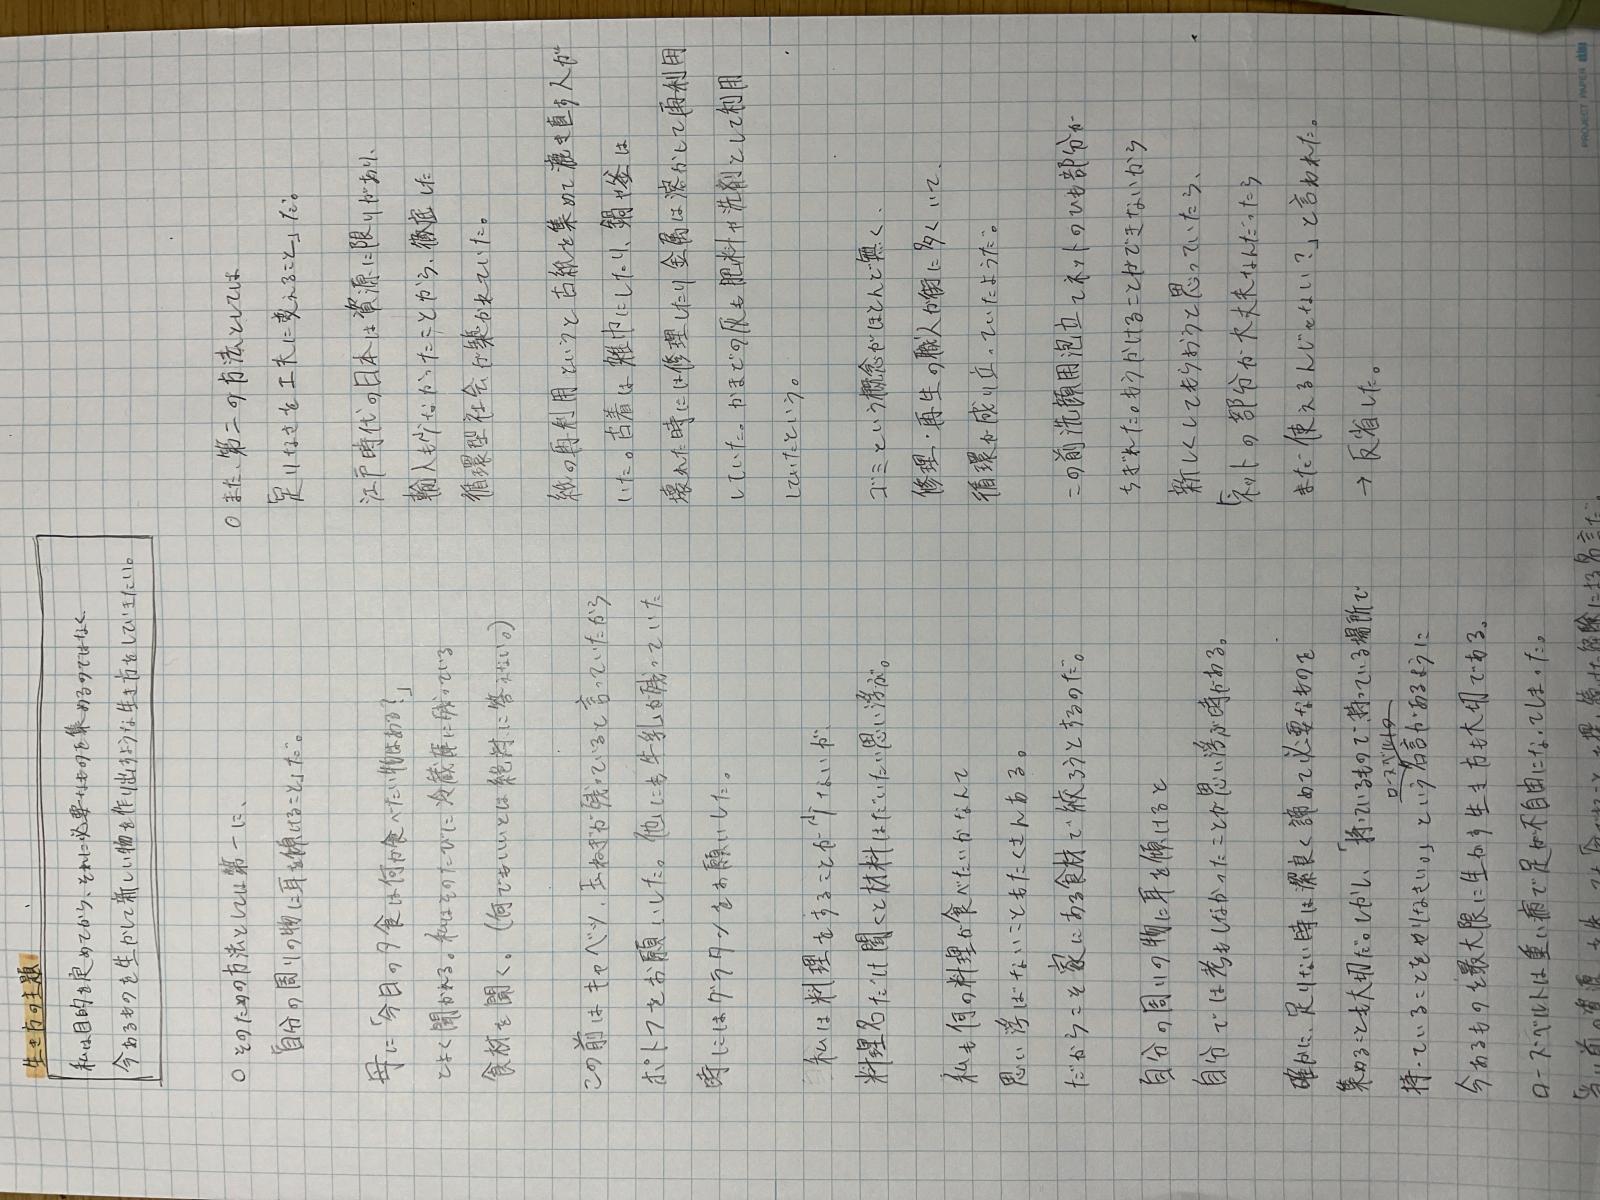 生き方の主題
私は目的を定めてから、それに必要なものを集めるのではなく
今あるものを生かして新しい物を作り出すような生き方をしていきたい。
○そのための方法としては第一に、
「自分の周りの物に耳を傾けること」だ。
母に「今日の夕食は何か食べたい物はある?」
とよく聞かれる。私はそのたびに冷蔵庫に残っている
食材を聞く。(何でもいいとは絶対に答えない。)
この前はキャベツ、玉ねぎが残っていると言っていたから
ポトフをお願いした。他にも牛乳が残っていた
時にはグラタンをお願いした。
私は料理をすることが少ないが
料理名だけ聞くと材料はだいたい思い浮ぶ。
私も何の料理が食べたいかなんて
思い浮ばないこともたくさんある。
だからこそ家にある食材で絞ろうとするのだ。
自分の周りの物に耳を傾けると
自分では考もしなかったことが思い浮ぶ時がある。
確かに、足りない時は潔良く諦めて必要なものを
集めることも大切だ。しかし、「持っているもので持っている場所で
持っていることをやりなさい。」というローズベルトの名言があるように
今あるものを最大限に生かす生き方も大切である。
ローズベルトは重い病で足が不自由になってしまった。
○また、第二の方法としては
「足りなさを工夫に変えること」だ。
江戸時代の日本は資源に限りがあり、
輸入も少なかったことから、徹底した
循環型社会が築かれていた。
紙の再利用というと古紙を集めて漉き直す人が
いた。古着は雑巾にしたり、鍋や釜は
壊れた時には修理したり金属は溶かして再利用
していた。かまどの灰も肥料や洗剤として利用
していたという。
ゴミという概念がほとんど無く、
修理・再生の職人が街に多くいて、
循環が成り立っていたようだ。
この前洗顔用泡立てネットのひも部分が
ちぎれた。もうかけることができないから
新しくしてもらおうと思っていたら、
「ネットの部分が大丈夫なんだったら
まだ使えるんじゃない?」と言われた。
→反省した。
PROJECT PAPER